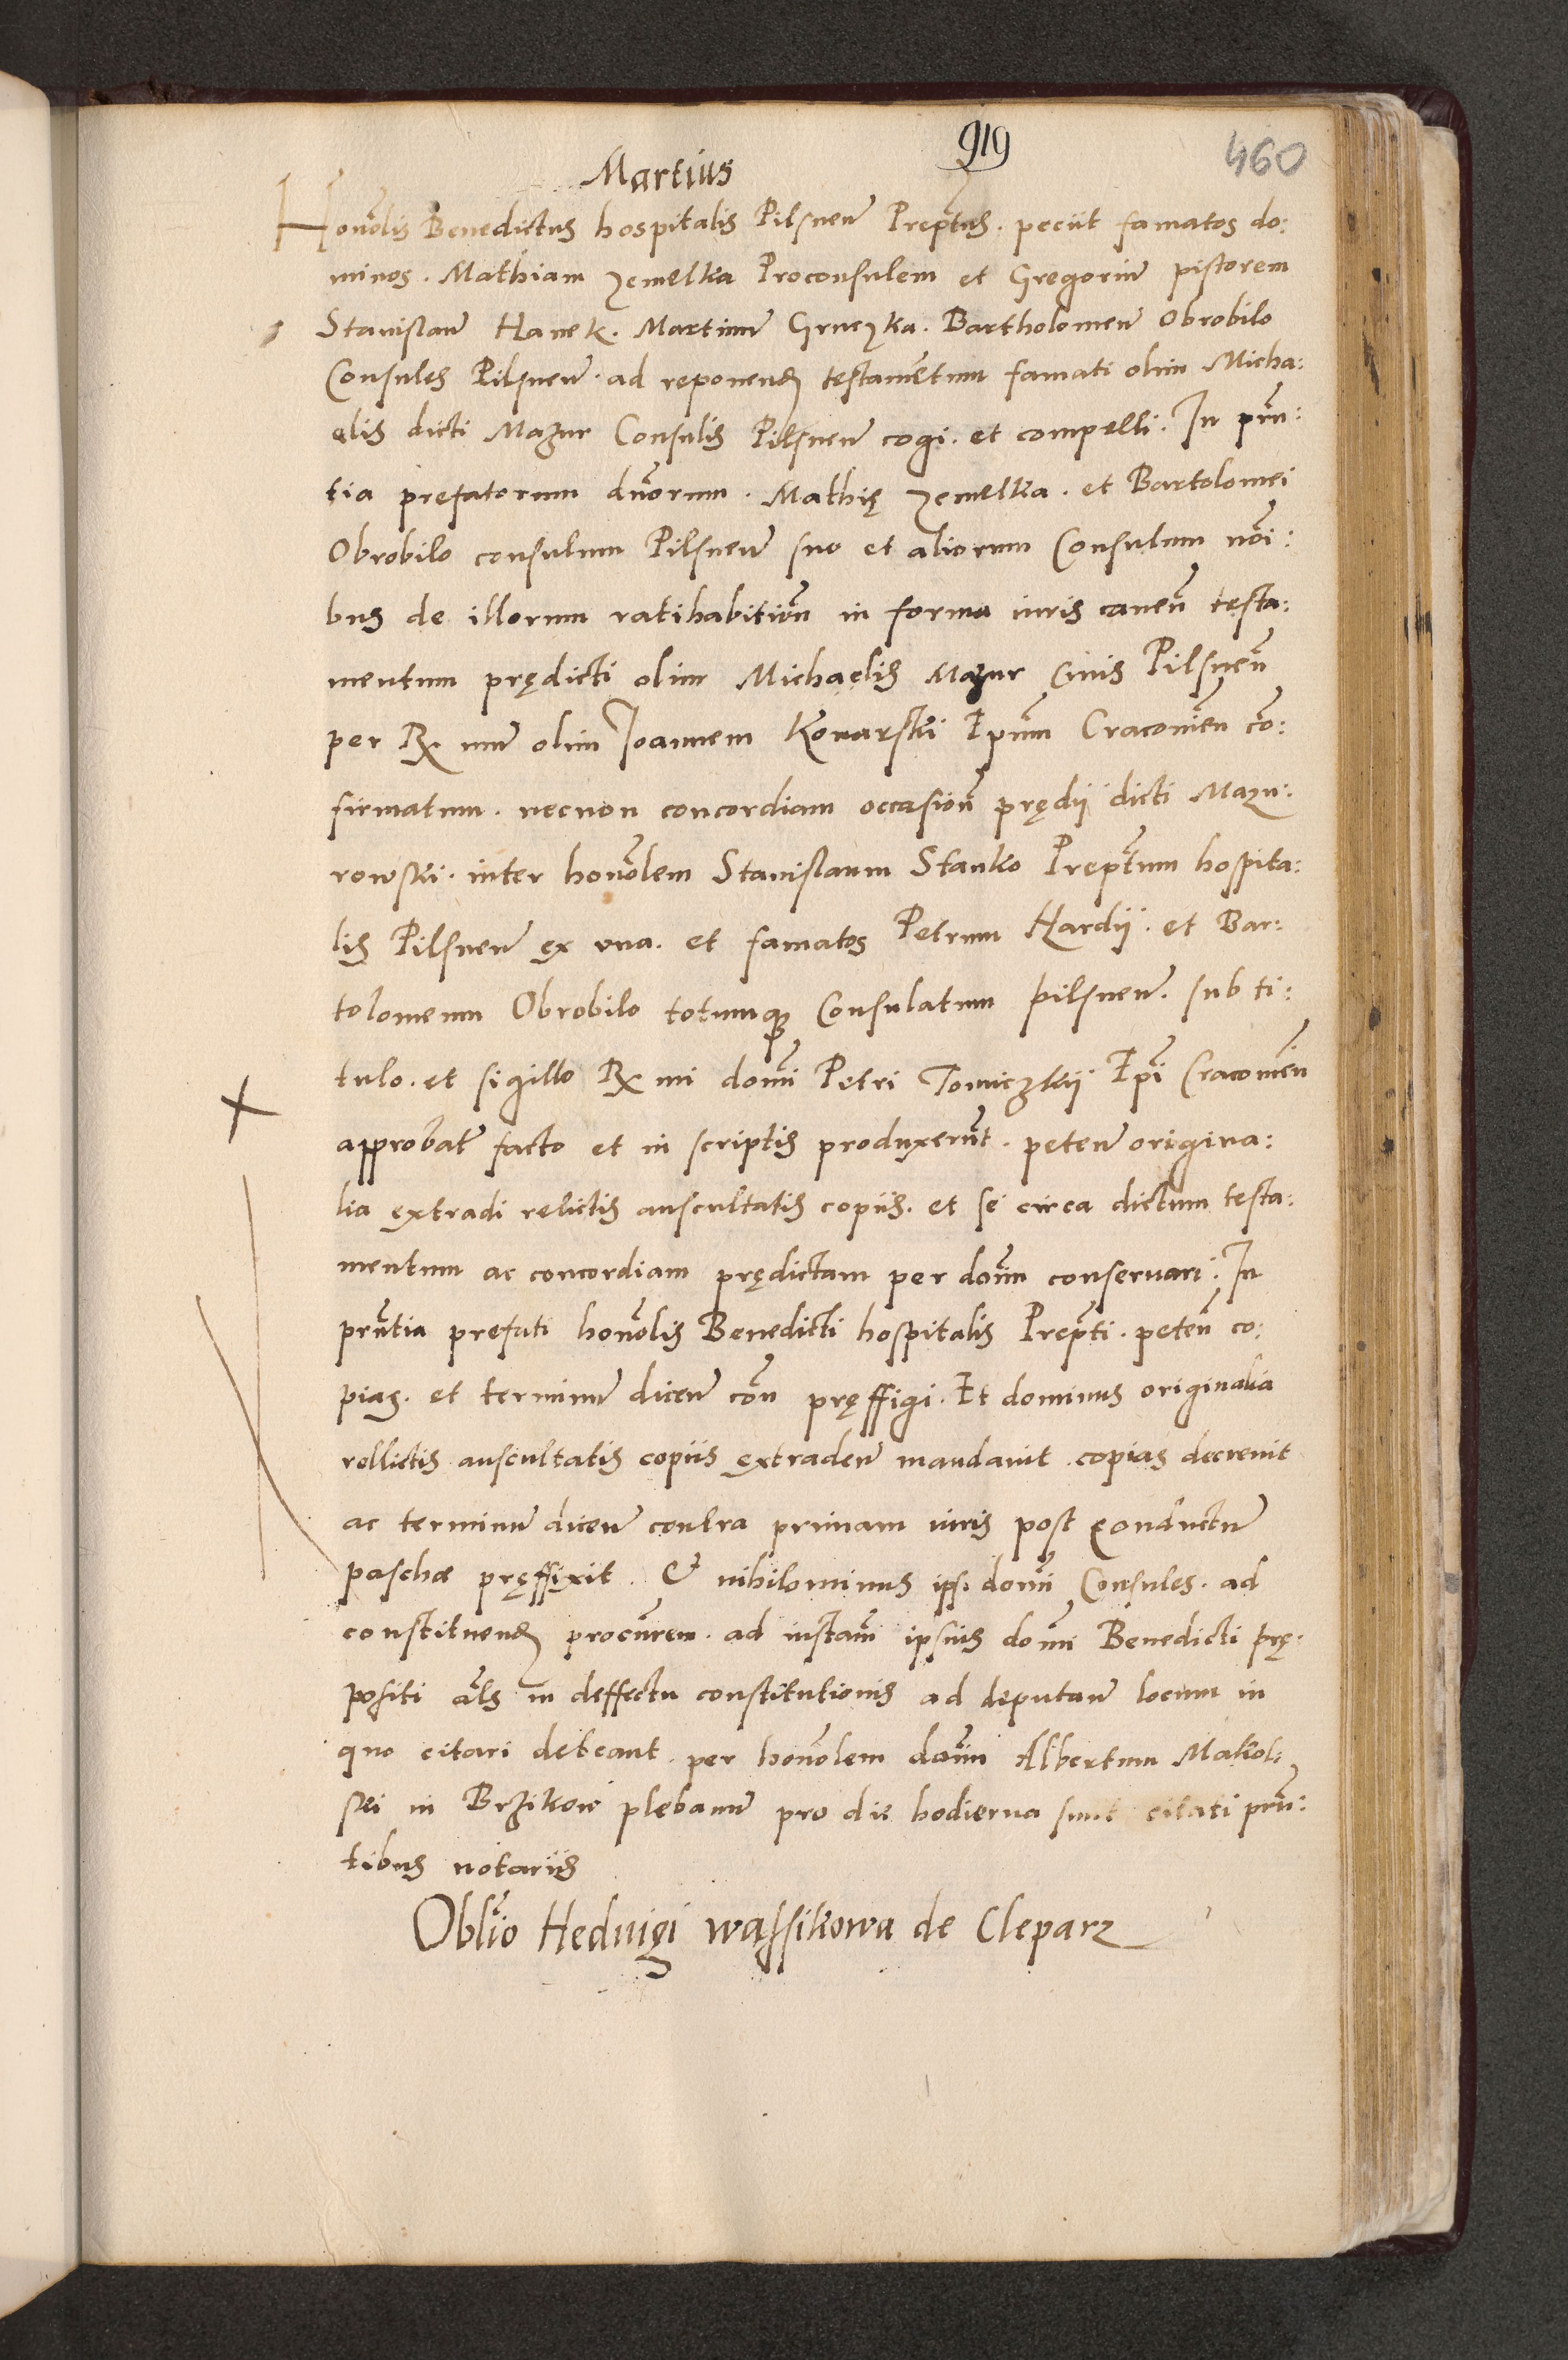 919
460
Martius
Honolis Benedictus hospitalis Pilsnen Preptus. peciit famatos do:
minos. Mathiam zemelka Proconsulem et Gregorium pistorem
Stanislaum Hanek. Martinum Gruczka. Bartholomeum Obrobilo
Consules Pilsnen. ad reponend testamentum famati olim Micha:
elis dicti Mazur Consulis Pilsnen cogi. et compelli. In prn:
tia prefatorum dnorum. Mathię zemelka. et Bartolomei
Obrobilo consulum Pilsnen suo et aliorum Consulum noi:
bus de illorum ratihabition in forma iuris cauen testa:
mentum prędicti olim Michaelis Mazur Ciuis Pilsnen
per Rx mum olim Joannem Konarski Epum Cracouien co:
firmatum. necnon concordiam occasion prędii dicti Mazu:
rowski. inter honolem Stanislaum Stanko Preptum hospita:
lis Pilsnen ex una. et famatos Petrum Hardij. et Bar:
tolomeum Obrobilo totumq Consulatum pilsnen. sub ti:
tulo. et sigillo Rx mi domi Petri Tomiczkij Epi Cracouien
approbat facto et in scriptis produxerunt. peten origina:
lia extradi relictis auscultatis copiis. et se circa dictum testa:
mentum ac concordiam prędictam per doum conseruari. In
prntia prefati honolis Benedicti hospitalis Prepti. peten co:
pias. et terminum dicen con pręffigi. Et dominus originalia
rellictis auscultatis copiis extraden mandauit. copias decreuit
ac terminum dicen contra primam iuris post conductum
paschæ pręffixit. Et nihilominus ipsi domi Consules. ad
constituend procurem. ad instam ipsius domi Benedicti prę:
positi als in deffectu constitutionis ad deputan locum in
quo citari debeant. per honolem doum Albertum Makol:
ski in Brzikow plebanum pro die hodierna sunt citati prn:
tibus notariis
Oblio Hedvigi wassikowa de Cleparz